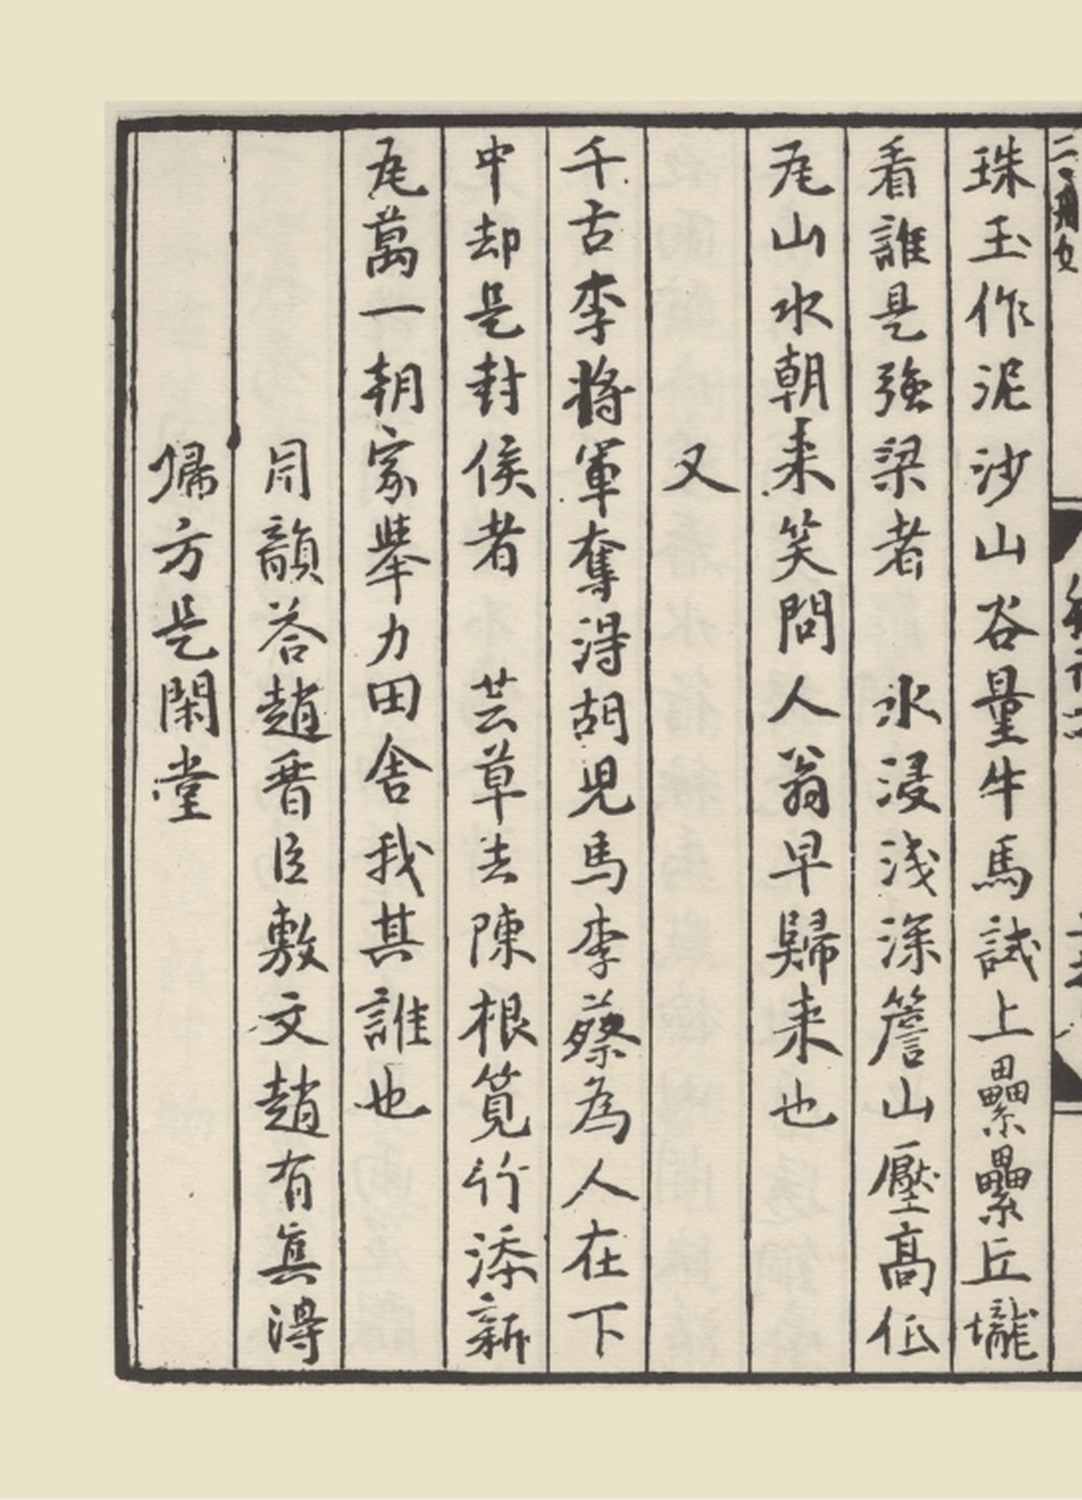 珠玉作泥沙山谷量牛馬試上纍纍丘壠
看誰是強梁者　水浸淺深簷山壓高低
瓦山水朝来笑問人翁早歸来也
又
千古李將軍奪得胡兒馬李蔡為人在下
中却是封侯者　芸草去陳根筧竹添新
瓦萬一朝家舉力田舍我其誰也
同韻答趙晋臣敷文趙有眞得
歸方是閑堂